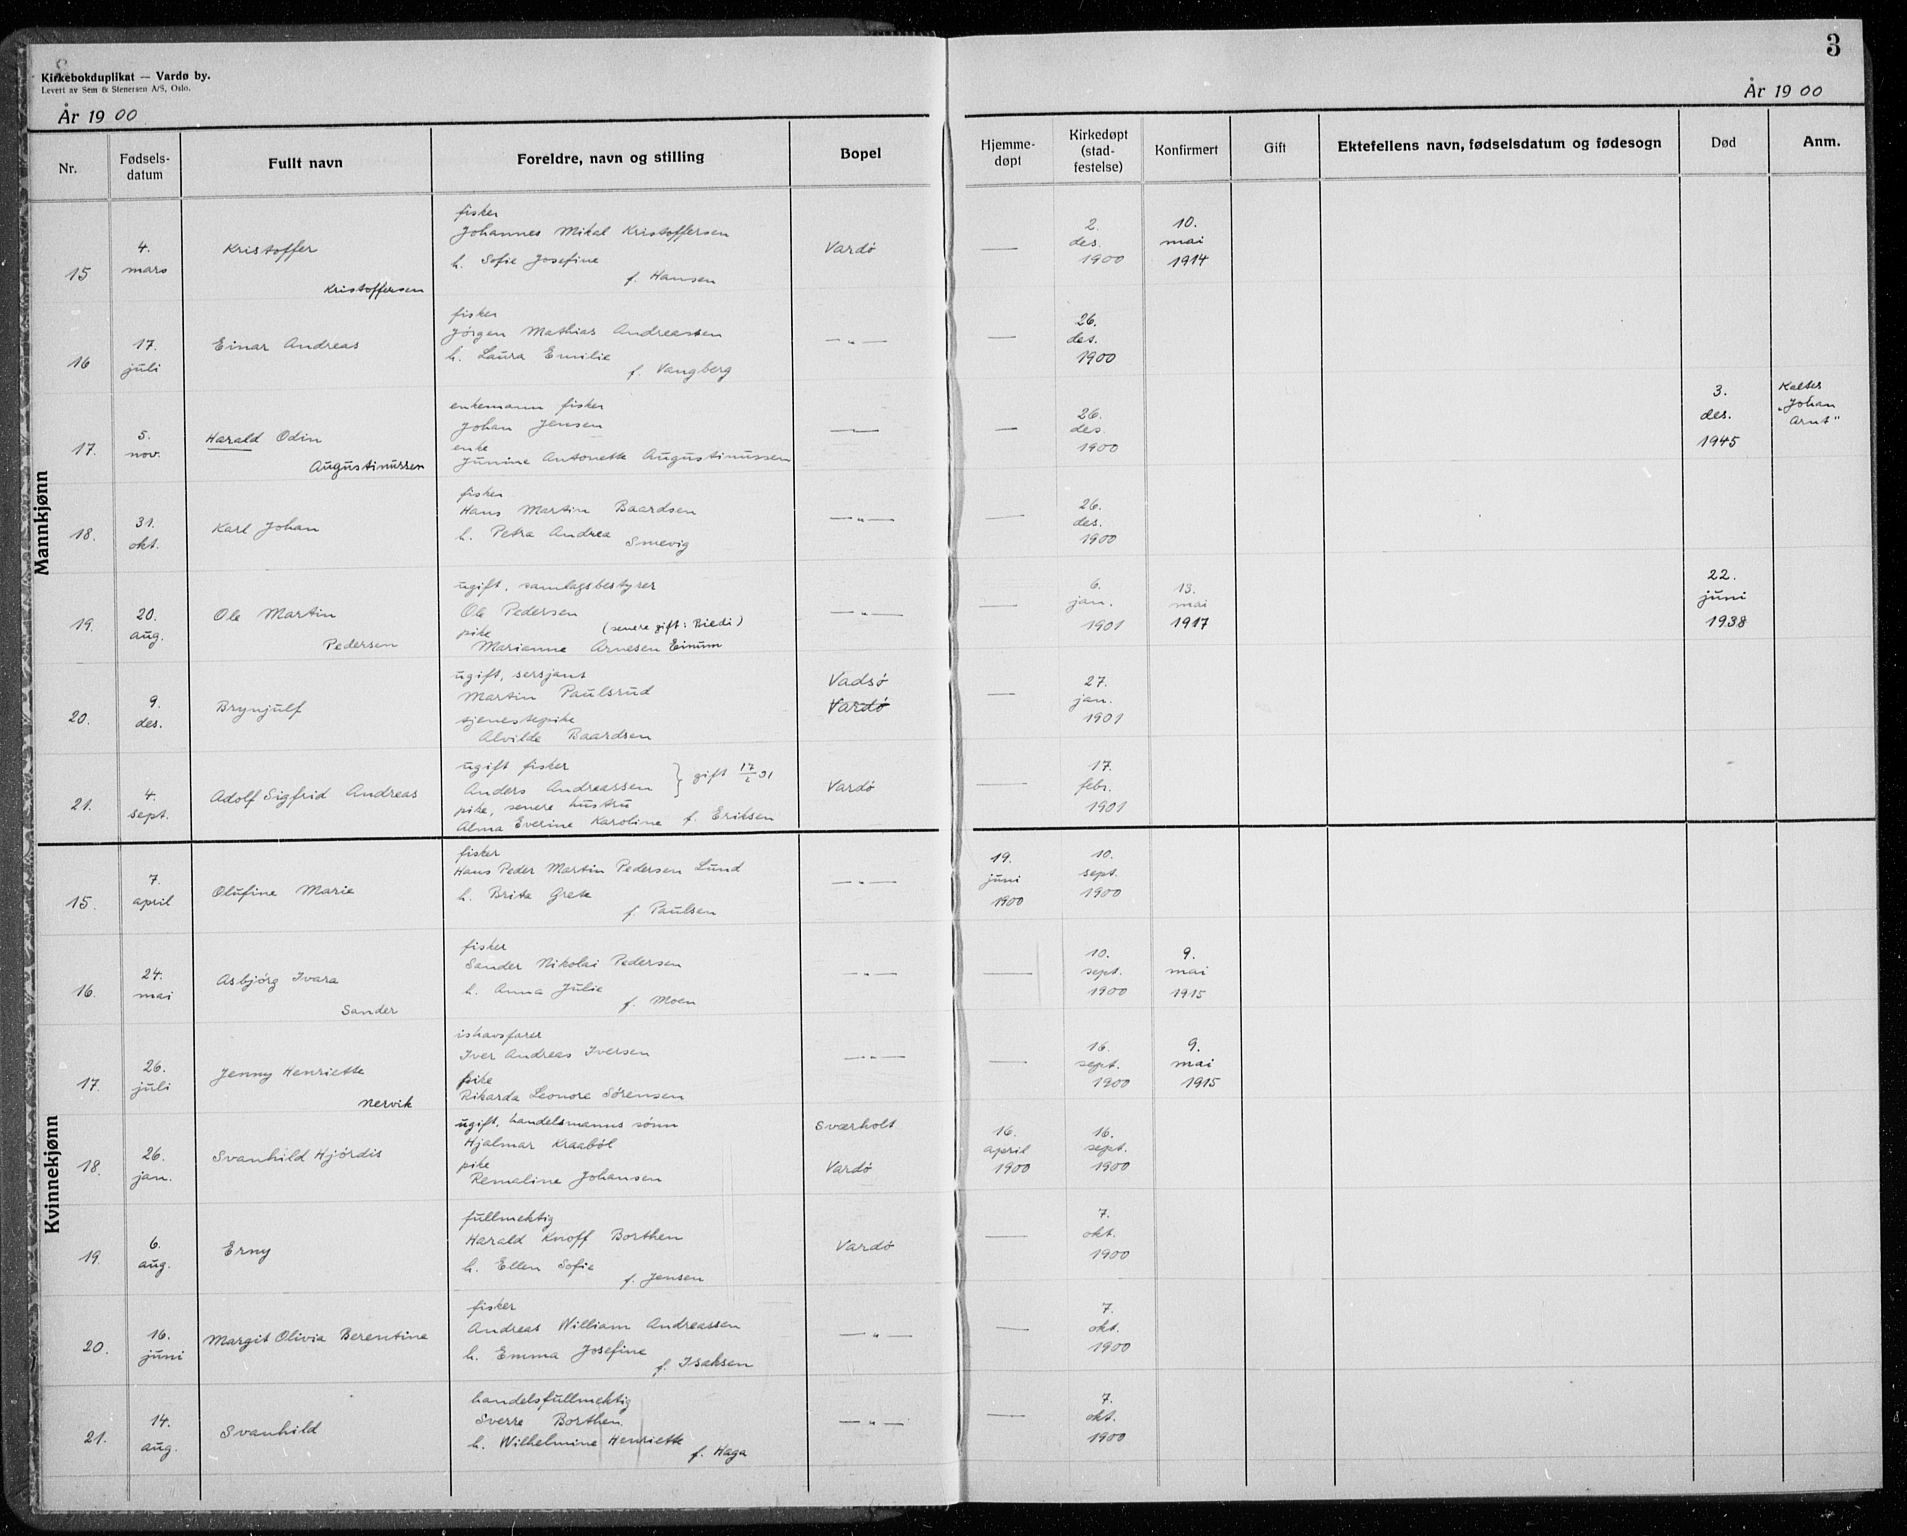 3
Kirkebokduplikat — Vardø by.
Levert av Sem & Stenersen A/S, Oslo.
År 1900
År 1900
Nr.
Fødsels-
datum
Fullt navn
Foreldre, navn og stilling
Bopel
Hjemme-
døpt
Kirkedøpt
(stad-
festelse)
Konfirmert
Gift
Ektefellens navn, fødselsdatum og fødesogn
Død
Anm.
Mannkjønn
15
4.
mars
Kristoffer
Kristoffersen
fisker
Johannes Mikal Kristoffersen
h. Sofie Josefine
f. Hansen
Vardø
—
2.
des.
1900
10.
mai
1914
16
17.
juli
Einar Andreas
fisker
Jørgen Mathias Andreassen
h. Laura Emilie
f. Vangberg
— " —
—
26.
des.
1900
17.
5.
nov.
Harald Odin
Augustinussen
enkemann fisker
Johan Jensen
enke
Junine Antonette Augustinussen
— " —
—
26.
des.
1900
3.
des.
1945
Kaltes
"Johan
Arnt"
18.
31.
okt.
Karl Johan
fisker
Hans Martin Baardsen
h. Petra Andrea
Smevig
— " —
—
26.
des.
1900
19.
20.
aug.
Ole Martin
Pedersen
ugift, samlagsbestyrer
Ole Pedersen
pike (senere gift: Riedi)
Marianne Arnesen Einum
— " —
—
6.
jan.
1901
13.
mai
1917
22.
juni
1938
20.
9.
des.
Brynjulf
ugift, sersjant
Martin Paulsrud
tjenestepike
Alvilde Baardsen
Vadsø
Vardø
—
27.
jan.
1901
21.
4.
sept.
Adolf Sigfrid Andreas
ugift fisker
Anders Andreassen } gift 17/2 01
pike, senere hustru
Alma Everine Karoline f. Eriksen
Vardø
—
17.
febr.
1901
Kvinnekjønn
15.
7.
april
Olufine Marie
fisker
Hans Peder Martin Pedersen Lund
h. Brita Grete
f. Paulsen
— " —
19.
juni
1900
10.
sept.
1900
16.
24.
mai
Asbjørg Ivara
Sander
fisker
Sander Nikolai Pedersen
h. Anna Julie
f. Moen
— " —
—
10.
sept.
1900
9.
mai
1915
17.
26.
juli
Jenny Henriette
Nervik
ishavsfarer
Iver Andreas Iversen
pike
Rikarda Leonore Sørensen
— " —
—
16.
sept.
1900
9.
mai
1915
18.
26.
jan.
Svanhild Hjørdis
ugift, handelsmanns sønn
Hjalmar Kraabøl
pike
Remaline Johansen
Sværholt
Vardø
16.
april
1900
16.
sept.
1900
19.
6.
aug.
Erny
fullmektig
Harald Knoff Borthen
h. Ellen Sofie
f. Jensen
Vardø
—
7.
okt.
1900
20.
16.
juni
Margit Olivia Berentine
fisker
Andreas William Andreassen
h. Emma Josefine
f. Isaksen
— " —
—
7.
okt.
1900
21.
14.
aug.
Svanhild
handelsfullmektig
Sverre Borthen
h. Wilhelmine Henriette
f. Haga
— " —
—
7.
okt.
1900